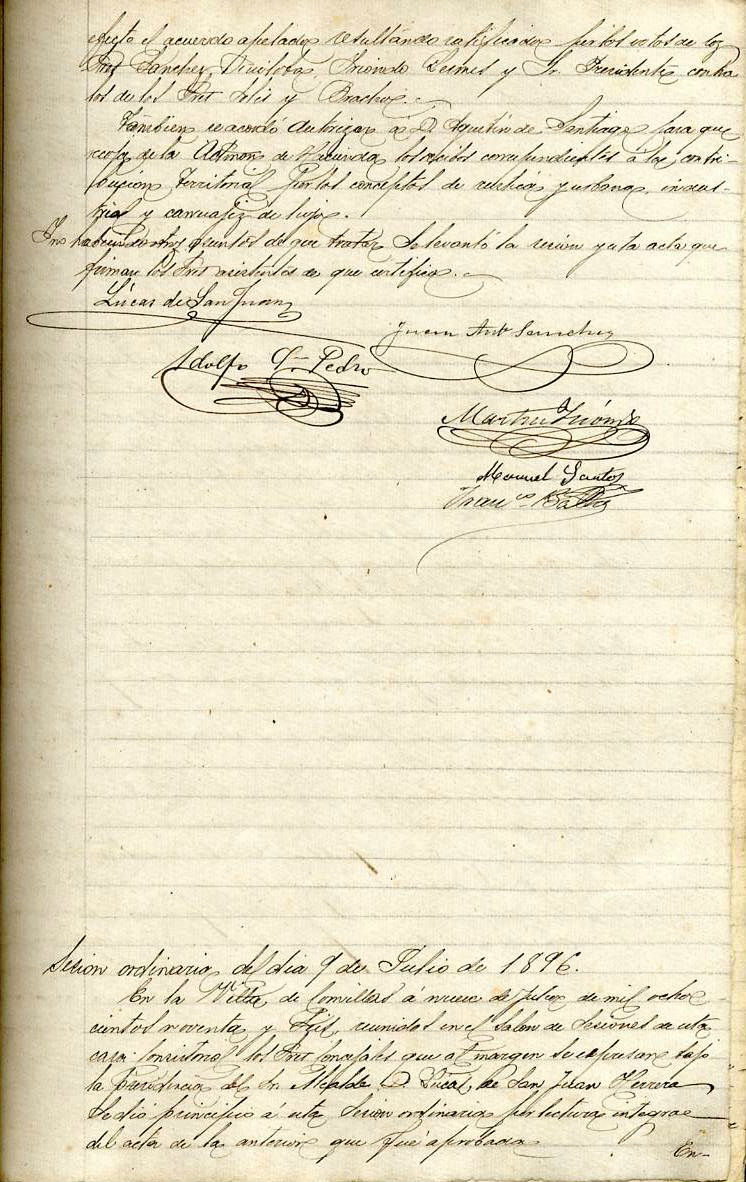 efecto el acuerdo apelado, resultando ratificado por los votos de los
Sres Sanchez, Iriondo y Sr. Presidente contra
los de los Sres Solis y
Tambien se acordó autorizar a D. Agustin de Santiago para que
recoja de la Admon de Hacienda los recibos correspondientes á la contri-
bucion Territorial por los conceptos de rústica y urbana, indus-
trial y carruajes de lujo.
Y no habiendo otros asuntos de que tratar se levantó la sesion y esta acta que
firman los Sres asistentes de que certifico.
Lúcas de San Juan
Juan Anto Sanchez
Adolfo Gn Pedro
Martin Iriondo
Manuel Santos
Franco
Sesion ordinaria del dia 9 de Julio de 1896.
En la Villa de Comillas á nueve de Julio de mil ocho
cientos noventa y seis, reunidos en el salon de Sesiones de esta
casa Consistorial los Sres Concejales que al margen se expresan bajo
la presidencia del Sr. Alcalde D. Lucas de San Juan Herrera
se dió principio á esta Sesion ordinaria por lectura integra
del acta de la anterior que fué aprobada
En-